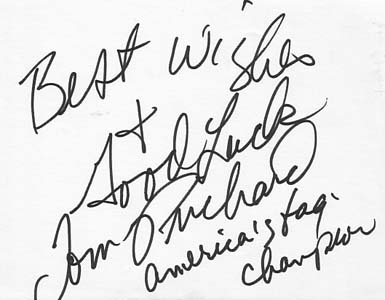 Best Wishes
+
Good Luck
Tom Prichard
America's tag.
Champion